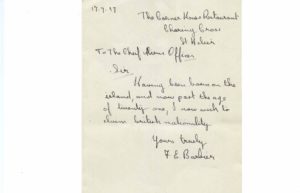 The Corner House Restaurant
Charing Cross
St Helier
To The Chief Aliens Officer
Sir
Having been born on the
island, and now past the age
of twenty one, I now wish to
claim british nationality
Yours truly
F E Barbier